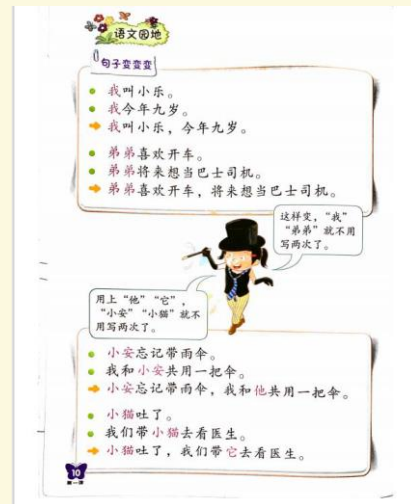 语文园地
句子变变变
我叫小乐。
我今年九岁。
我叫小乐，今年九岁。
弟弟喜欢开车。
弟弟将来想当巴士司机。
弟弟喜欢开车，将来想当巴士司机。
这样变，“我”
“弟弟”就不用
写两次了。
用上“他”“它”，
“小安”“小猫”就不
用写两次了。
小安忘记带雨伞。
我和小安共用一把伞。
小安忘记带雨伞，我和他共用一把伞。
小猫吐了。
我们带小猫去看医生。
小猫吐了，我们带它去看医生。
10